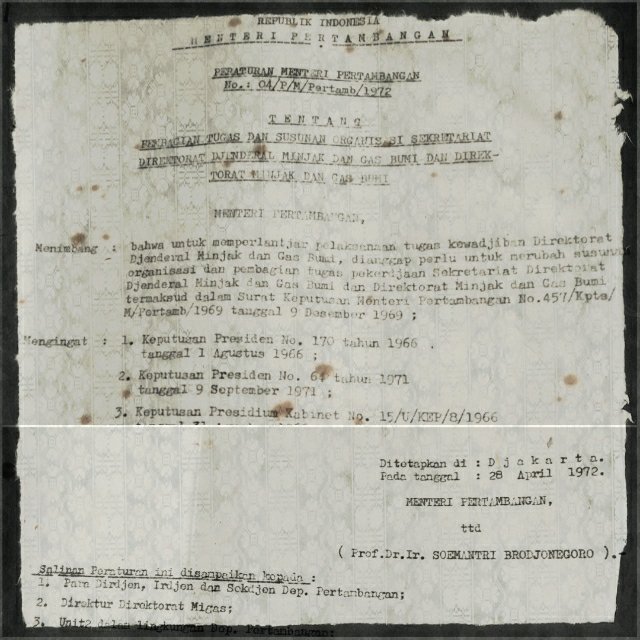 REPUBLIK INDONESIA
MENTERI PERTAMBANGAN
PERATURAN MENTERI PERTAMBANGAN
No.: 04/P/M/Pertamb/1972
T E N T A N G
PEMBAGIAN TUGAS DAN SUSUNAN ORGANISASI SEKRETARIAT
DIREKTORAT DJENDERAL MINJAK DAN GAS BUMI DAN DIREK-
TORAT MINJAK DAN GAS BUMI
MENTERI PERTAMBANGAN,
Menimbang : bahwa untuk memperlantjar pelaksanaan tugas kewadjiban Direktorat
Djenderal Minjak dan Gas Bumi, dianggap perlu untuk merubah susunan
organisasi dan pembagian tugas pekerdjaan Sekretariat Direktorat
Djenderal Minjak dan Gas Bumi dan Direktorat Minjak dan Gas Bumi
termaksud dalam Surat Keputusan Menteri Pertambangan No.457/Kpts/
M/Pertamb/1969 tanggal 9 Desember 1969 ;
Mengingat : 1. Keputusan Presiden No. 170 tahun 1966 .
tanggal 1 Agustus 1966 ;
2. Keputusan Presiden No. 64 tahun 1971
tanggal 9 September 1971 ;
3. Keputusan Presidium Kabinet No. 15/U/KEP/8/1966
Ditetapkan di : D j a k a r t a.
Pada tanggal : 28 April 1972.
MENTERI PERTAMBANGAN,
ttd
( Prof.Dr.Ir. SOEMANTRI BRODJONEGORO ).-
Salinan Peraturan ini disampaikan kepada :
1. Para Dirdjen, Irdjen dan Sekdjen Dep. Pertambangan;
2. Direktur Direktorat Migas;
3. Unit2 dalam lingkungan Dep. Pertambangan;